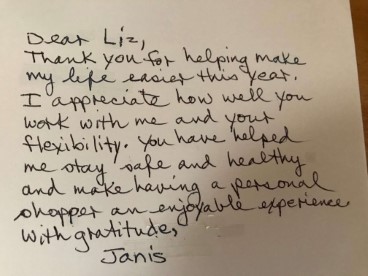 Dear Liz,
Thank you for helping make
my life easier this year.
I appreciate how well you
work with me and your
flexibility. You have helped
me stay safe and healthy
and make having a personal
shopper an enjoyable experience.
With gratitude,
Janis